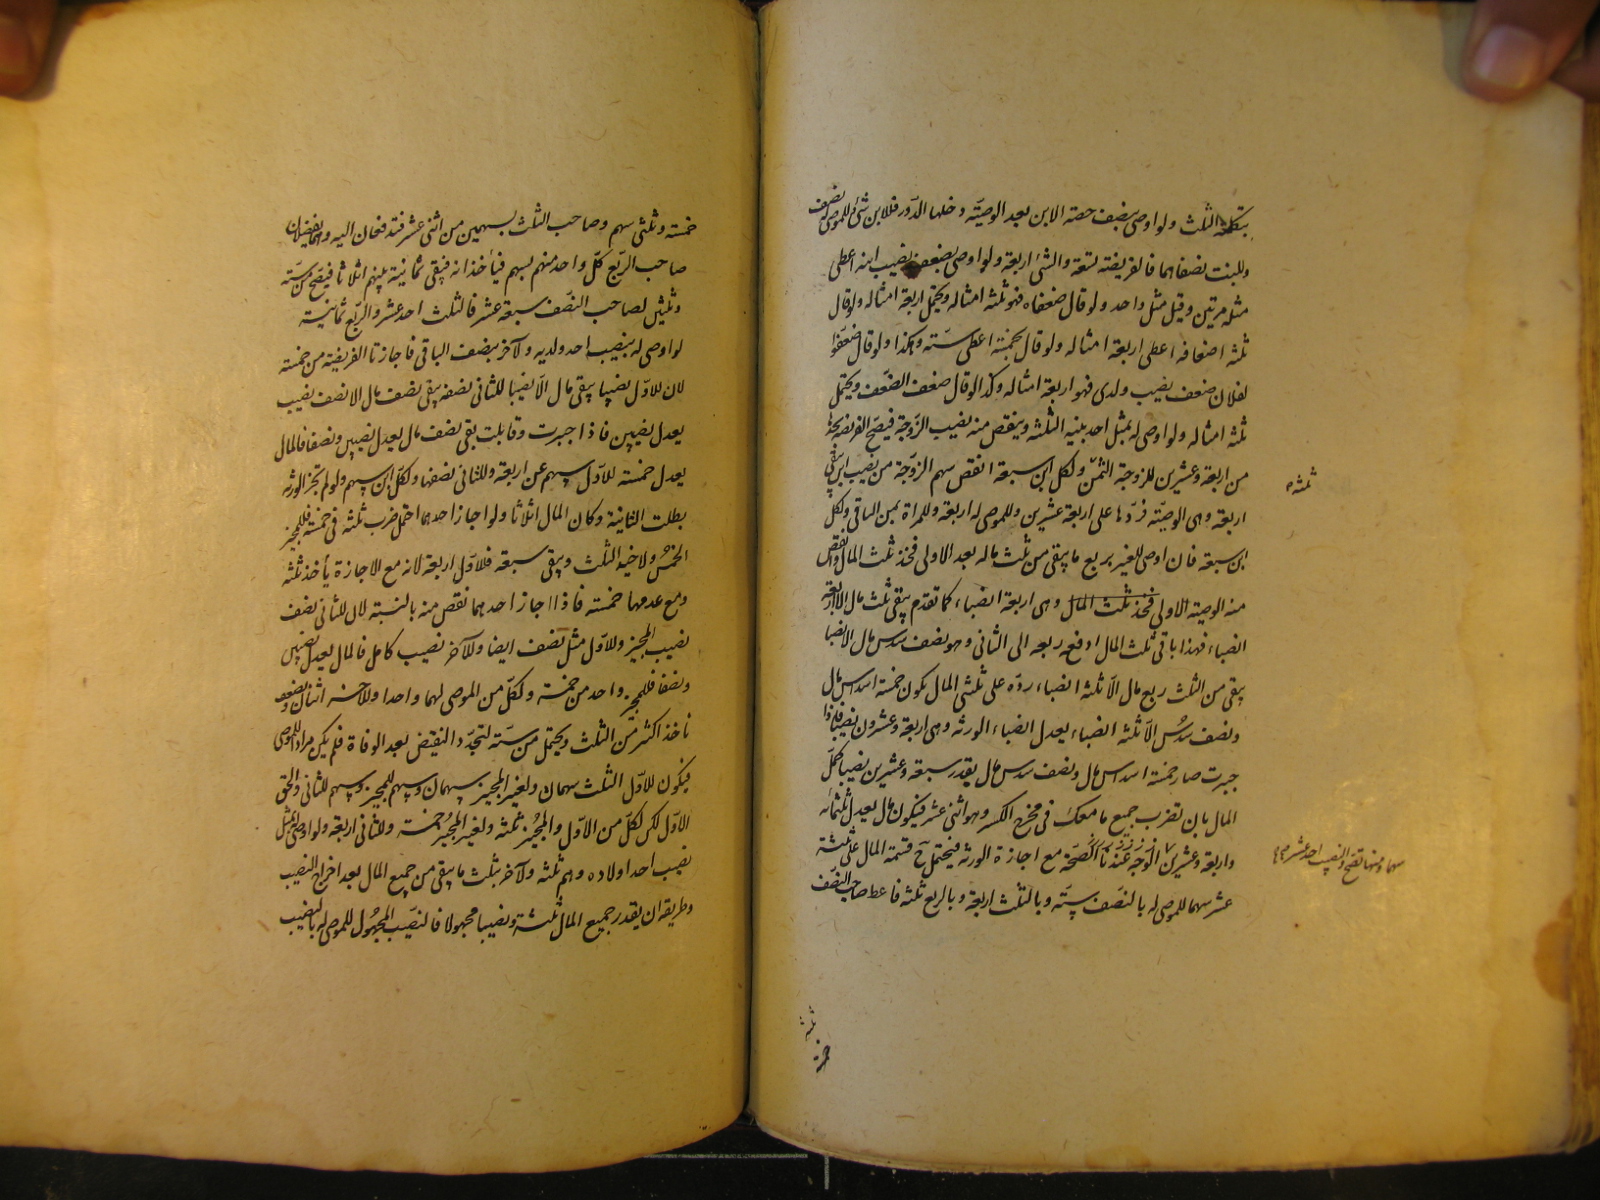 بتكلمة الثلث ولو اوصى بضعف حصته الابن بعد الوصيّة دخلها الدّور فللابن شئ وللموصى له نصف
وللبنت نصفاهما فالفريضة تسعة والشئ اربعة ولو اوصى بضعف نصيب ابنه اعطى
مثله مرتين وقيل مثل واحد ولو قال ضعفاه فهو ثلثه امثاله ويحتمل اربعة امثاله ولو قال
ثلثه اضعافه اعطى اربعة امثاله ولو قال بخمسة اعطى ستّه وهكذا ولو قال ضعّفوا
لفلان ضعف نصيب ولدى فهو اربعة امثاله وكذا لو قال ضعف الضّعف ويحتمل
ثلثه امثاله ولو اوصى له بمثل احد بنيه الثلثه وينقص منه نصيب الزّوجة فيصحّ الفريضه بحقها
من اربعة وعشرين للزوجة الثمن ولكل ابن سبعة انقص سهم الزوّجة من نصيب ابن يبقى
اربعة وهى الوصيّه فزدها على اربعة عشرين وللموصى له اربعة وللمراة ثمن الباقى ولكل
ابن سبعة فان اوصى للغير بربع ما يبقى من ثلث ماله بعد الاولى فخذ ثلث المال وانقص
منه الوصيّة الاولى فخذ ثلث المال وهى اربعة انصباء كما تقدم يبقى ثلث مال الا اربعة
انصباء فهذا باقى ثلث المال ادفع ربعه الى الثانى وهو نصف سدس مال الا نصبا
يبقى من الثلث ربع مال الّا ثلثة انصباء ردّه على ثلثى المال يكون خمسة اسداس مال
ونصف سدُس الّا ثلثة انصباء يعدل انصباء الورثه وهى اربعة وعشرون نصيبا فاذا
جبرت صار خمسة اسداس مال ونصف سدس مال يقدر سبعة وعشرين نصيبا كمّل
المال بان تضرب جميع ما معك فى مخرج الكسر وهو اثنى عشر فيكون مال يعدل ثلثمائه
واربعة وعشرين الوجه عندنا الصّحّة مع اجازة الورثه فيحتمل ح قسمة المال على ثلثة
عشر سهما للموصى له بالنصف ستّه وبالثلث اربعة وبالربع ثلثه فاعط صاحب النصف
ثلثه م
سهما ومنها تصح والنصيب احد عشر
ثلثه
خمسة
خمسة وثلثى سهم وصاحب الثلث بسهمين من اثنى عشر فتدفعان اليه وهما يفضلان
صاحب الربّع كلّ واحد منهم بسهم فيأخذانه فيبقى ثمانية بينهم اثلاثا فيصحّ من ستّه
وثلثين لصاحب النصّف سبعة عشر فالثلث احد عشر والربّع ثمانية
لو اوصى له بنصيب احد ولديه ولآخر بنصف الباقى فاجازتا الفريضة من خمسة
لان للاوّل نصيبا يبقى مال الّا نصيبا للثانى نصفه يبقى نصف مال الا نصف نصيب
يعدل نصيبين فاذا جبرت وقابلت بقى نصف مال يعدل نصيبين ونصفا فالمال
يعدل خمسة للاوّل سهم عن اربعة وللثانى نصفها ولكلّ ابن سهم ولو لم تجز الورثه
بطلت الثانية وكان المال اثلاثا ولو اجاز احدهما احتمل ضرب ثلثه فى خمسة فللمجيز
الخمُس ولاخيه الثلث ويبقى سبعة فللاوّل اربعة لانه مع الاجازة يأخذ ثلثه
ومع عدمها خمسته فاذا اجاز احدهما نقص منه بالنسبة لان للثانى نصف
نصيب المجيز وللاوّل مثل نصف ايضا وللآخر نصيب كامل فالمال يعدل نصيبين
ونصفا فللمجيز واحد من خمسة ولكلّ من الموصى لهما واحد اوللآخر اثنان ويضعف
ناخذ اكثر من الثلث ويحتمل من ستّه لتجدّد النقض بعد الوفاة فلم يكن مراد اللموصى
فيكون للاوّل الثلث سهمان ولغير المجيز سهمان وسهم للمجيز وسهم للثانى والحق
الاوّل لكن لكلّ من الاوّل والمجيز ثلثه ولغير المجيز خمسة وللثانى اربعة ولو اوصى بمثل
نصيب احد اولاده وهم ثلثه ولآخر بثلث ما يبقى من جميع المال بعد اخراج النصيب
وطريقه ان يقدر جميع المال ثلثه ونصيبا مجهولا فالنصّيب المجهُول للموصى له بالنصيب